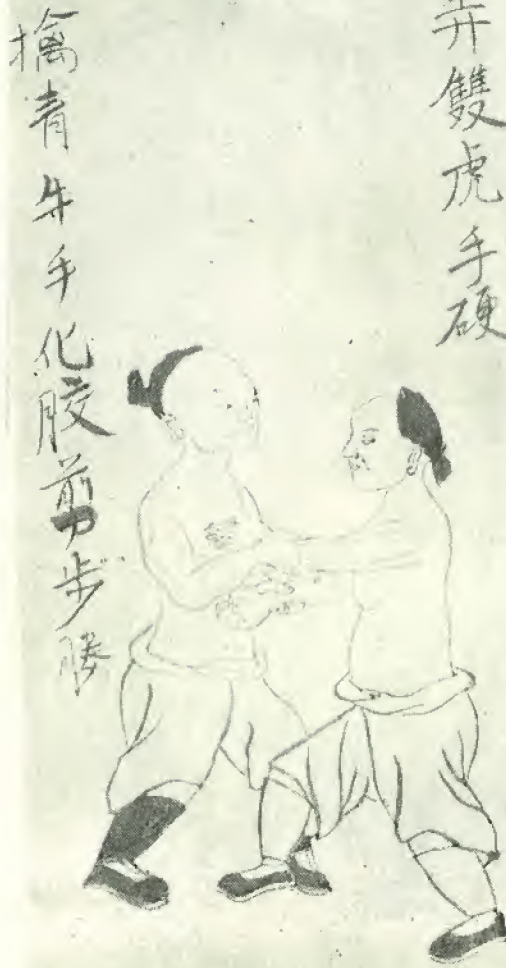 弄雙虎手硬
擒青牛手化胶剪步勝